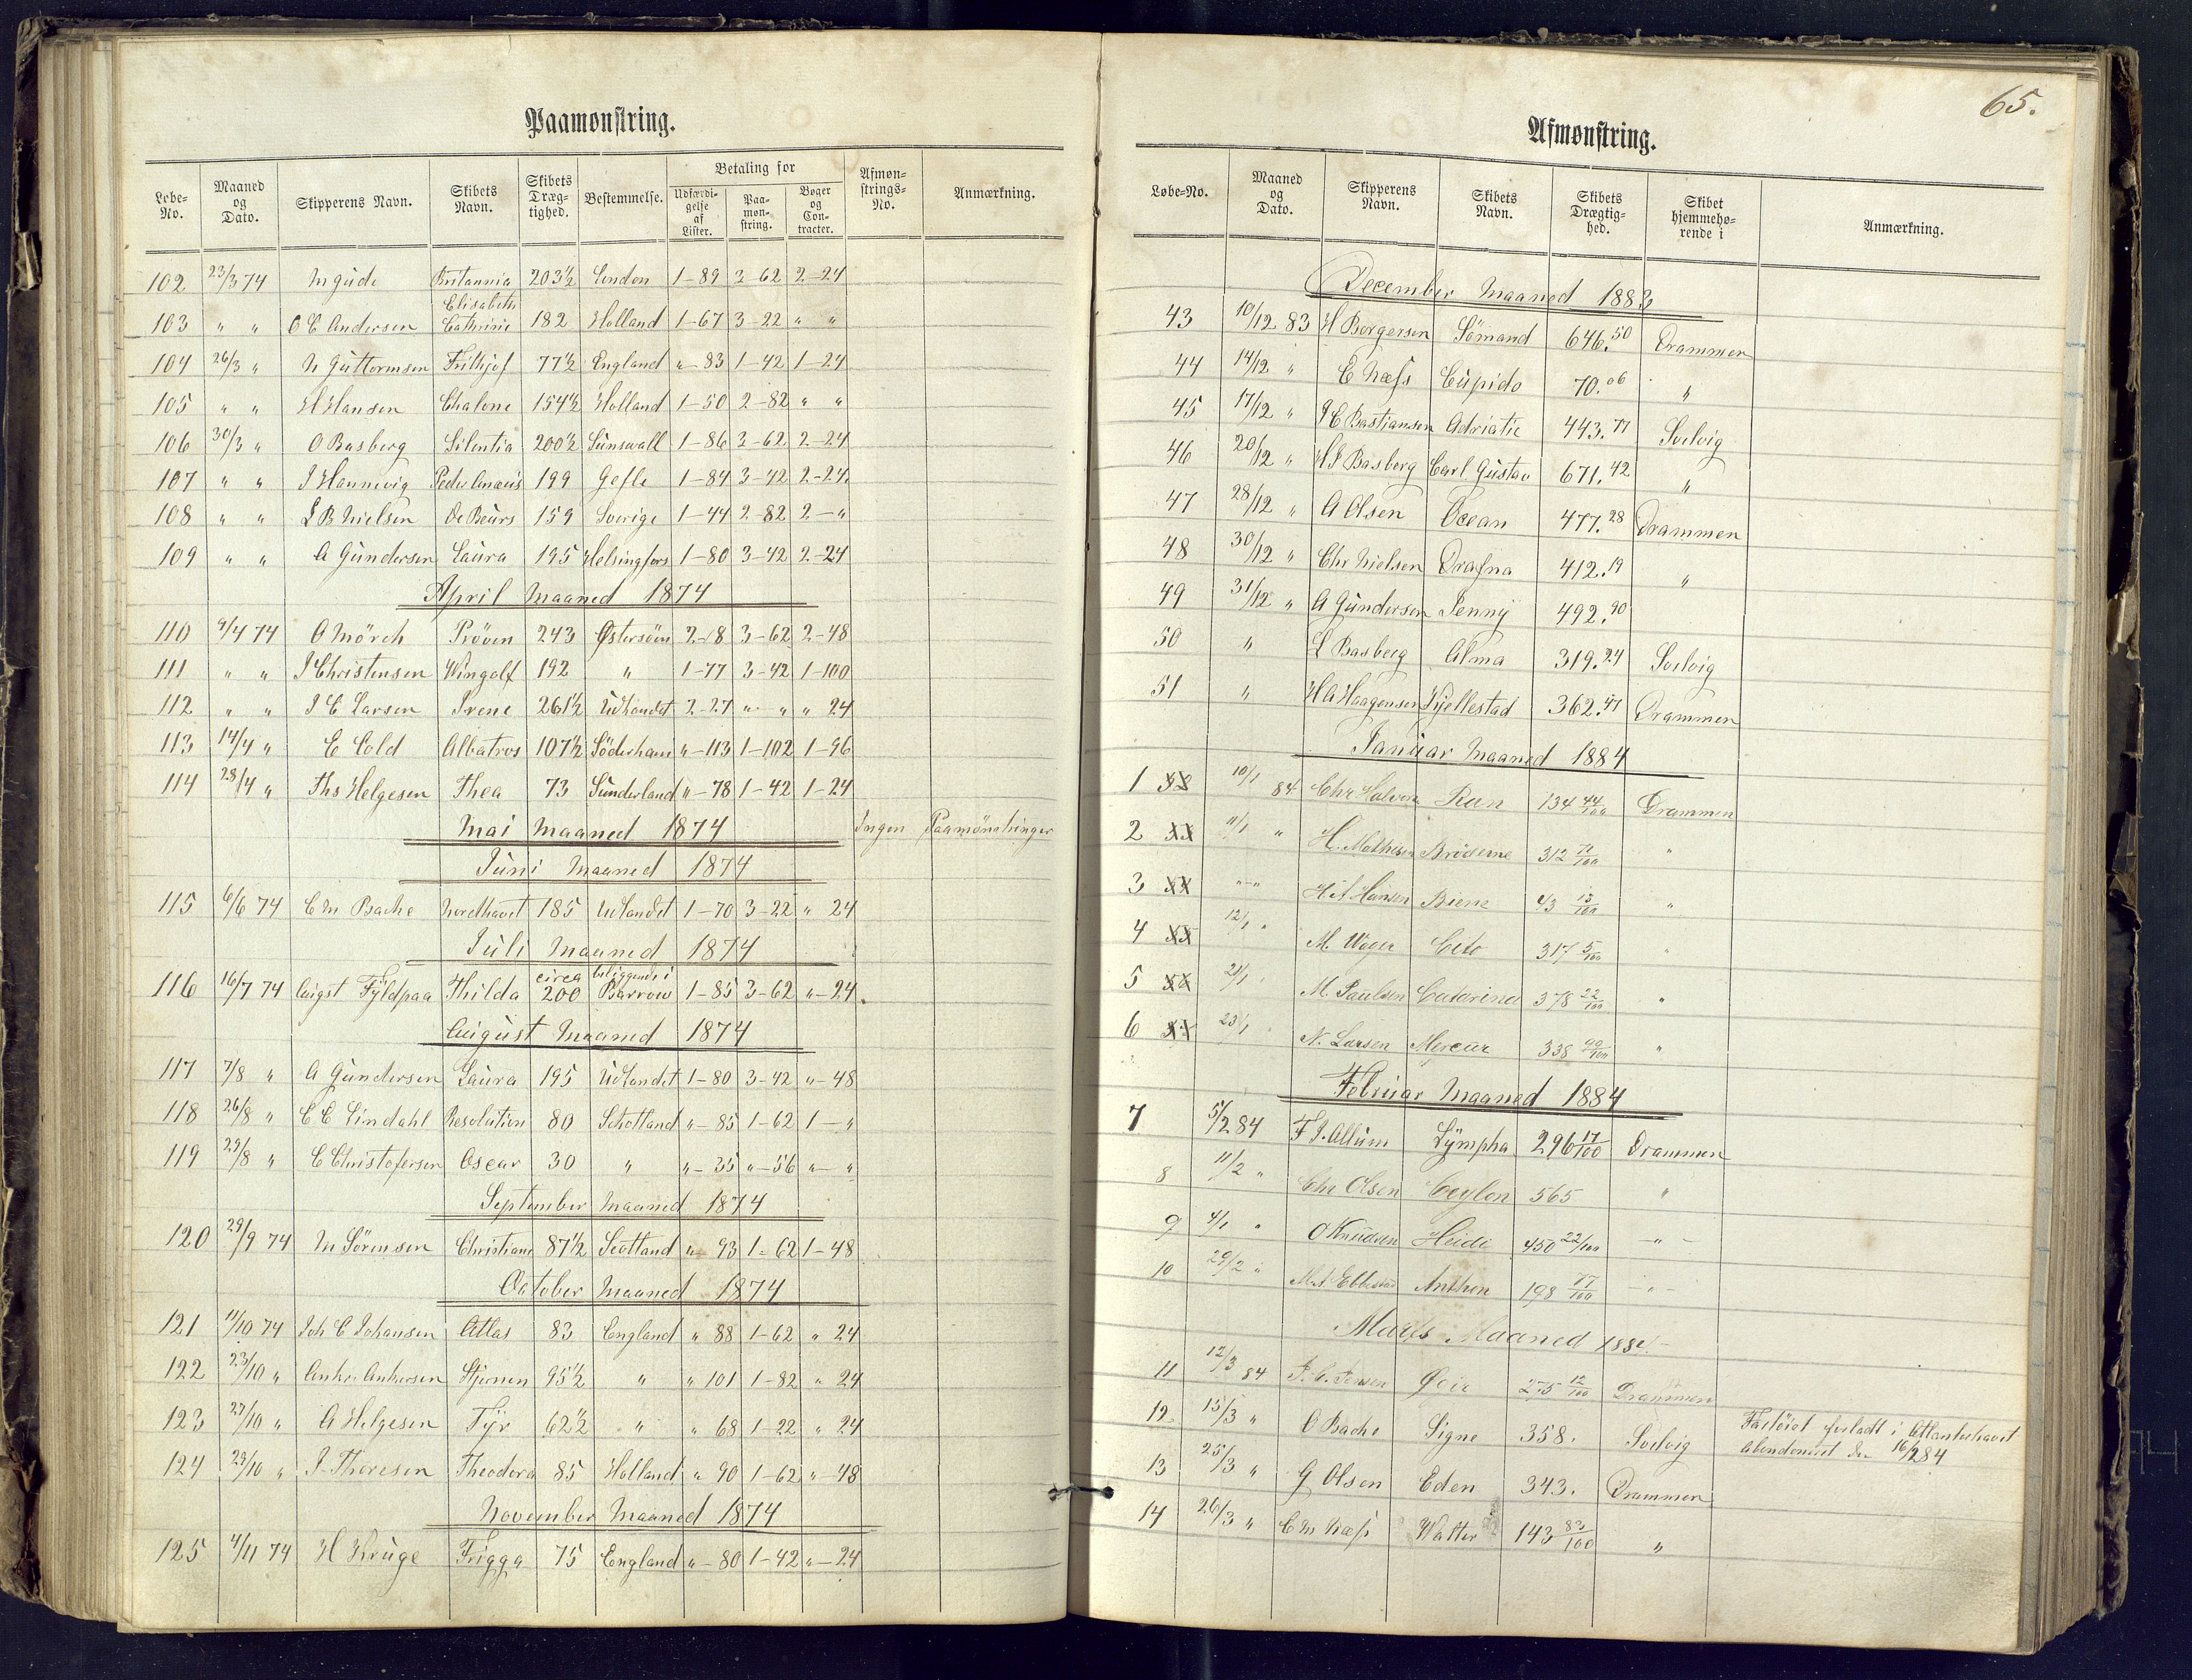 Paamønstring.
Løbe-No. | Maaned og Dato. | Skipperens Navn. | Skibets Navn. | Skibets Dræg-tighed. | Bestemmelse. | Betaling for | Udfærdi-gelse af Lister. | Paa-møn-string. | Bøger og Con-tracter. | Afmøn-strings-No. | Anmærkning.
102 23/3 74 M Gude Britannia 203½ London 1-89 3-62 2-24
103 " " O C Andersen Elisabeth Cathrine 182 Holland 1-67 3-22 " "
104 26/3 " N Guttormsen Frithjof 77½ England "-83 1-42 1-24
105 " " H Hansen Chalone 154½ Holland 1-50 2-82 " "
106 30/3 " O Basberg Silentia 200½ Sunswall 1-86 3-62 2-24
107 " " J Hannevig Peder Anæus 199 Gefle 1-84 3-42 2-24
108 " " L B Nielsen De Beurs 159 Sverige 1-44 2-82 2-"
109 " " A Gundersen Laura 195 Helsingfors 1-80 3-42 2-24
April Maaned 1874
110 9/4 74 O Mörch Pröven 243 Østersøen 2-8 3-62 2-48
111 " " J Christensen Wingolf 192 " 1-77 3-42 1-100
112 " " J C Larsen Irene 261½ Udlandet 2-27 " " " 24
113 14/4 " E Cold Albatros 107½ Söderham "-113 1-102 1-96
114 28/4 " Ths Helgesen Thea 73 Sunderland "-78 1-42 1-24
Mai Maaned 1874 Ingen Paamönstringer
Juni Maaned 1874
115 6/6 74 C M Bache Nordhavet 185 Udlandet 1-70 3-22 " 24
Juli Maaned 1874
116 16/7 74 August Fyldpaa Thilda circa 200 beliggende i Barrow 1-85 3-62 "-24
August Maaned 1874
117 7/8 " A Gundersen Laura 195 Udlandet 1-80 3-42 "-48
118 26/8 " C E Lindahl Resolution 80 Schotland "-85 1-62 1-"
119 29/8 " C Christofersen Oscar 30 " "-35 "-56 "-"
September Maaned 1874
120 29/9 74 M Sörensen Christiane 87½ Scotland "-93 1-62 1-48
October Maaned 1874
121 11/10 74 Joh C Johansen Atlas 83 England " 88 1-62 " 24
122 23/10 " Anker Ankersen Stjernen 95½ " " 101 1-82 " 24
123 27/10 " A Helgesen Tyr 62½ " " 68 1-22 " 24
124 29/10 " J. Thoresen Theodora 85 Holland " 90 1-62 "-48
November Maaned 1874
125 4/11 74 H Kruge Frigga 75 England "-80 1-42 "-24
65.
Afmønstring.
Løbe-No. | Maaned og Dato. | Skipperens Navn. | Skibets Navn. | Skibets Drægtig-hed. | Skibet hjemmehø-rende i | Anmærkning.
December Maaned 1883
43 10/12 83 H Borgersen Sömand 646.50 Drammen
44 14/12 " C Næss Cupido 70.06 "
45 17/12 " J C Bastiansen Adriatic 443.77 Svelvig
46 20/12 " H J Basberg Carl Gustav 671.42 "
47 28/12 " A Olsen Ocean 477.28 Drammen
48 30/12 " Chr Nielsen Drafna 412.19 "
49 31/12 " A Gundersen Jenny 492.90
50 " L Basberg Alma 319.24 Svelvig
51 " H A Haagensen Kjellestad 362.47 Drammen
Januar Maaned 1884
1 10/1 84 Chr Halvors Ran 134 44/100 Drammen
2 11/1 " H. Mathisen Brödrene 312 71/100 "
3 "-" H A Hansen Biene 43 13/100 "
4 12/1 " M. Ceto 317 5/100 "
5 21/1 M. Paulsen Catarina 378 22/100 "
6 23/1 N. Larsen Mercur 338 99/100 "
Februar Maaned 1884
7 5/2 84 F J. Allum Lÿmpha 296 17/100 Drammen
8 11/2 " Chr Olsen Ceylon 565 "
9 4/1 " O Knudsen Heidi 450 22/100 -"-
10 29/2 " M. A. Anthon 198 77/100 -"-
Marts Maaned 1884
11 12/3 84 J. C. Jensen 275 12/100 Drammen
12 15/3 " O Bache Signe 358. Svelvig Fartöiet forladt i Atlanterhavet Abandoneret den 16/2 84
13 25/3 " G Olsen Eden 343. Drammen
14 26/3 " C M Næss Walter 143 83/100 "